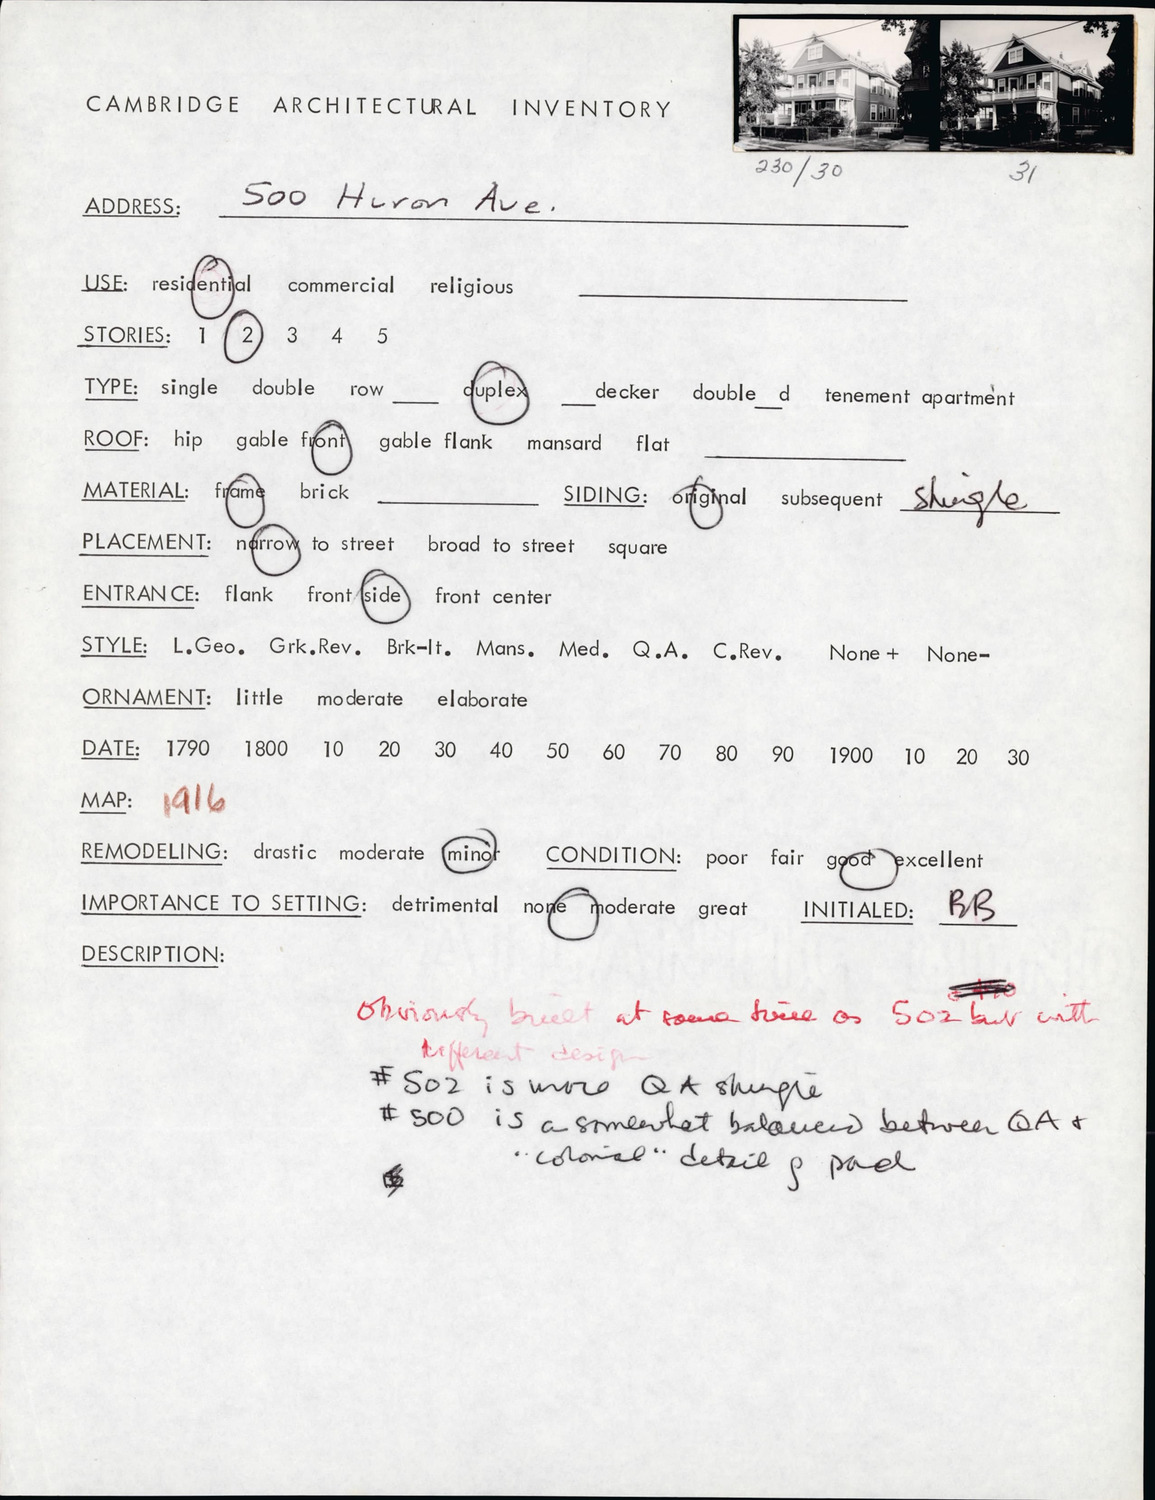 CAMBRIDGE ARCHITECTURAL INVENTORY
230/30 31
ADDRESS: 500 Huron Ave.
USE: residential commercial religious
STORIES: 1 2 3 4 5
TYPE: single double row ___ duplex ___decker double__d tenement apartment
ROOF: hip gable front gable flank mansard flat
MATERIAL: frame brick SIDING: original subsequent shingle
PLACEMENT: narrow to street broad to street square
ENTRANCE: flank front side front center
STYLE: L.Geo. Grk.Rev. Brk-It. Mans. Med. Q.A. C.Rev. None+ None-
ORNAMENT: little moderate elaborate
DATE: 1790 1800 10 20 30 40 50 60 70 80 90 1900 10 20 30
MAP: 1916
REMODELING: drastic moderate minor CONDITION: poor fair good excellent
IMPORTANCE TO SETTING: detrimental none moderate great INITIALED: BB
DESCRIPTION:
Obviously built at same time as 502 but with
different design
#502 is more QA shingle
#500 is a somewhat balanced between QA +
"colonial" detail